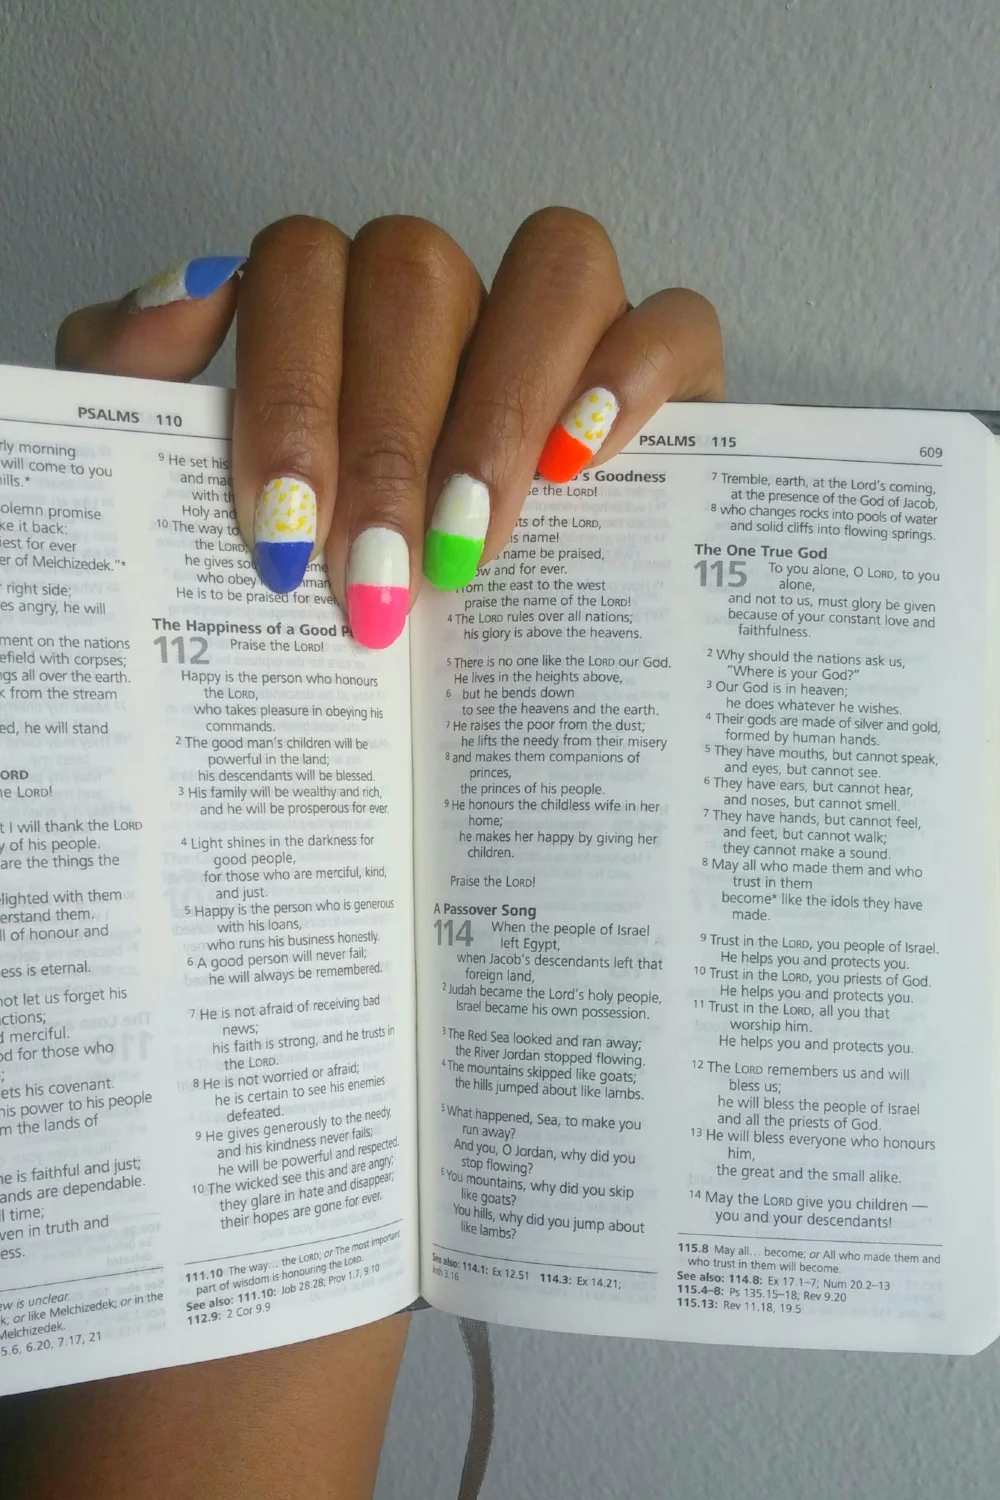 PSALMS 110
rly morning
will come to you
ills.*
olemn promise
ke it back:
iest for ever
er of Melchizedek."*
right side;
es angry, he will
ment on the nations
efield with corpses;
ngs all over the earth.
k from the stream
ed, he will stand
ORD
he LORD!
t I will thank the LORD
y of his people.
are the things the
elighted with them
erstand them.
ll of honour and
ess is eternal.
not let us forget his
ctions;
d merciful.
od for those who
;
ets his covenant.
his power to his people
m the lands of
he is faithful and just;
ands are dependable.
ll time;
ven in truth and
ess.
ew is unclear.
k; or like Melchizedek; or in the
Melchizedek.
5.6, 6.20, 7.17, 21
9 He set his
and mad
with th
Holy and
10 The way to
the LORD;
he gives sou
who obey
He is to be praised for ever
The Happiness of a Good P
112 Praise the LORD!
Happy is the person who honours
the LORD,
who takes pleasure in obeying his
commands.
2 The good man's children will be
powerful in the land;
his descendants will be blessed.
3 His family will be wealthy and rich,
and he will be prosperous for ever.
4 Light shines in the darkness for
good people,
for those who are merciful, kind,
and just.
5 Happy is the person who is generous
with his loans,
who runs his business honestly.
6 A good person will never fail;
he will always be remembered.
7 He is not afraid of receiving bad
news;
his faith is strong, and he trusts in
the LORD.
8 He is not worried or afraid;
he is certain to see his enemies
defeated.
9 He gives generously to the needy,
and his kindness never fails;
he will be powerful and respected.
10 The wicked see this and are angry;
they glare in hate and disappear;
their hopes are gone for ever.
111.10 The way... the LORD; or The most important
part of wisdom is honouring the LORD.
See also: 111.10: Job 28.28; Prov 1.7, 9.10
112.9: 2 Cor 9.9
PSALMS 115
609
's Goodness
se the LORD!
ts of the LORD,
is name!
name be praised,
ow and for ever.
from the east to the west
praise the name of the LORD!
4 The LORD rules over all nations;
his glory is above the heavens.
5 There is no one like the LORD our God.
He lives in the heights above,
6 but he bends down
to see the heavens and the earth.
7 He raises the poor from the dust;
he lifts the needy from their misery
8 and makes them companions of
princes,
the princes of his people.
9 He honours the childless wife in her
home;
he makes her happy by giving her
children.
Praise the LORD!
A Passover Song
114 When the people of Israel
left Egypt,
when Jacob's descendants left that
foreign land,
2 Judah became the Lord's holy people,
Israel became his own possession.
3 The Red Sea looked and ran away;
the River Jordan stopped flowing.
4 The mountains skipped like goats;
the hills jumped about like lambs.
5 What happened, Sea, to make you
run away?
And you, O Jordan, why did you
stop flowing?
6 You mountains, why did you skip
like goats?
You hills, why did you jump about
like lambs?
See also: 114.1: Ex 12.51 114.3: Ex 14.21;
Josh 3.16
7 Tremble, earth, at the Lord's coming,
at the presence of the God of Jacob,
8 who changes rocks into pools of water
and solid cliffs into flowing springs.
The One True God
115 To you alone, O LORD, to you
alone,
and not to us, must glory be given
because of your constant love and
faithfulness.
2 Why should the nations ask us,
"Where is your God?"
3 Our God is in heaven;
he does whatever he wishes.
4 Their gods are made of silver and gold,
formed by human hands.
5 They have mouths, but cannot speak,
and eyes, but cannot see.
6 They have ears, but cannot hear,
and noses, but cannot smell.
7 They have hands, but cannot feel,
and feet, but cannot walk;
they cannot make a sound.
8 May all who made them and who
trust in them
become* like the idols they have
made.
9 Trust in the LORD, you people of Israel.
He helps you and protects you.
10 Trust in the LORD, you priests of God.
He helps you and protects you.
11 Trust in the LORD, all you that
worship him.
He helps you and protects you.
12 The LORD remembers us and will
bless us;
he will bless the people of Israel
and all the priests of God.
13 He will bless everyone who honours
him,
the great and the small alike.
14 May the LORD give you children —
you and your descendants!
115.8 May all... become; or All who made them and
who trust in them will become.
See also: 114.8: Ex 17.1–7; Num 20.2–13
115.4–8: Ps 135.15–18; Rev 9.20
115.13: Rev 11.18, 19.5